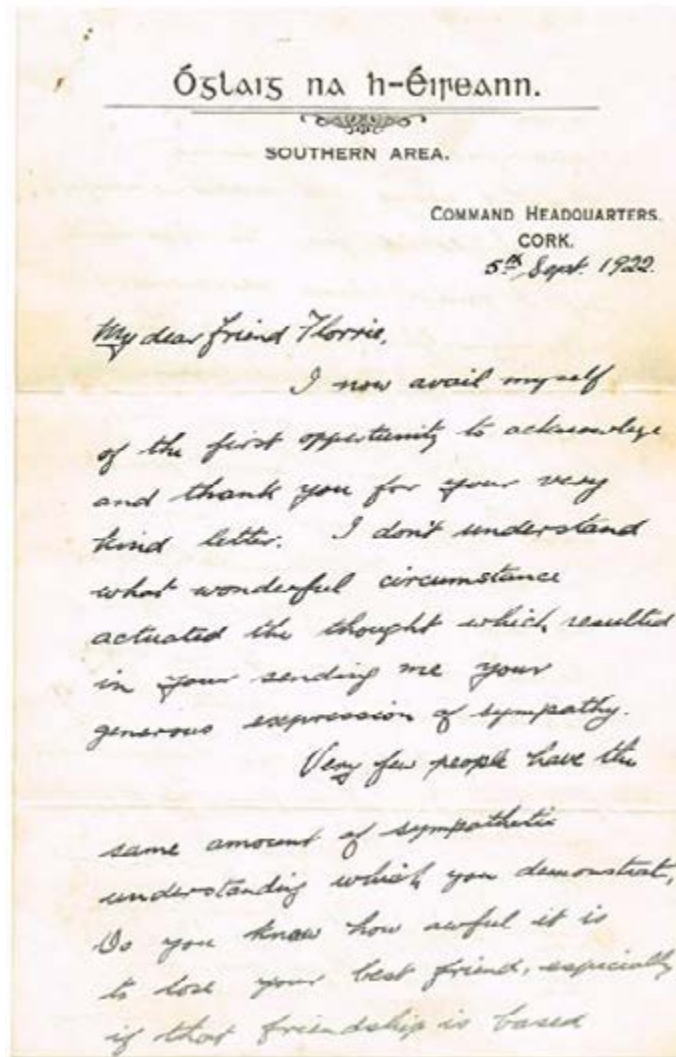 Óglaiġ na h-Éireann.
SOUTHERN AREA.
COMMAND HEADQUARTERS.
CORK.
5th Sept. 1922.
My dear friend Florrie,
I now avail myself
of the first opportunity to acknowlege
and thank you for your very
kind letter. I don't understand
what wonderful circumstance
actuated the thought which resulted
in your sending me your
generous expression of sympathy.
Very few people have the
same amount of sympathetic
understanding which you demonstrat,
Do you know how awful it is
to lose your best friend, especially
if that friendship is based